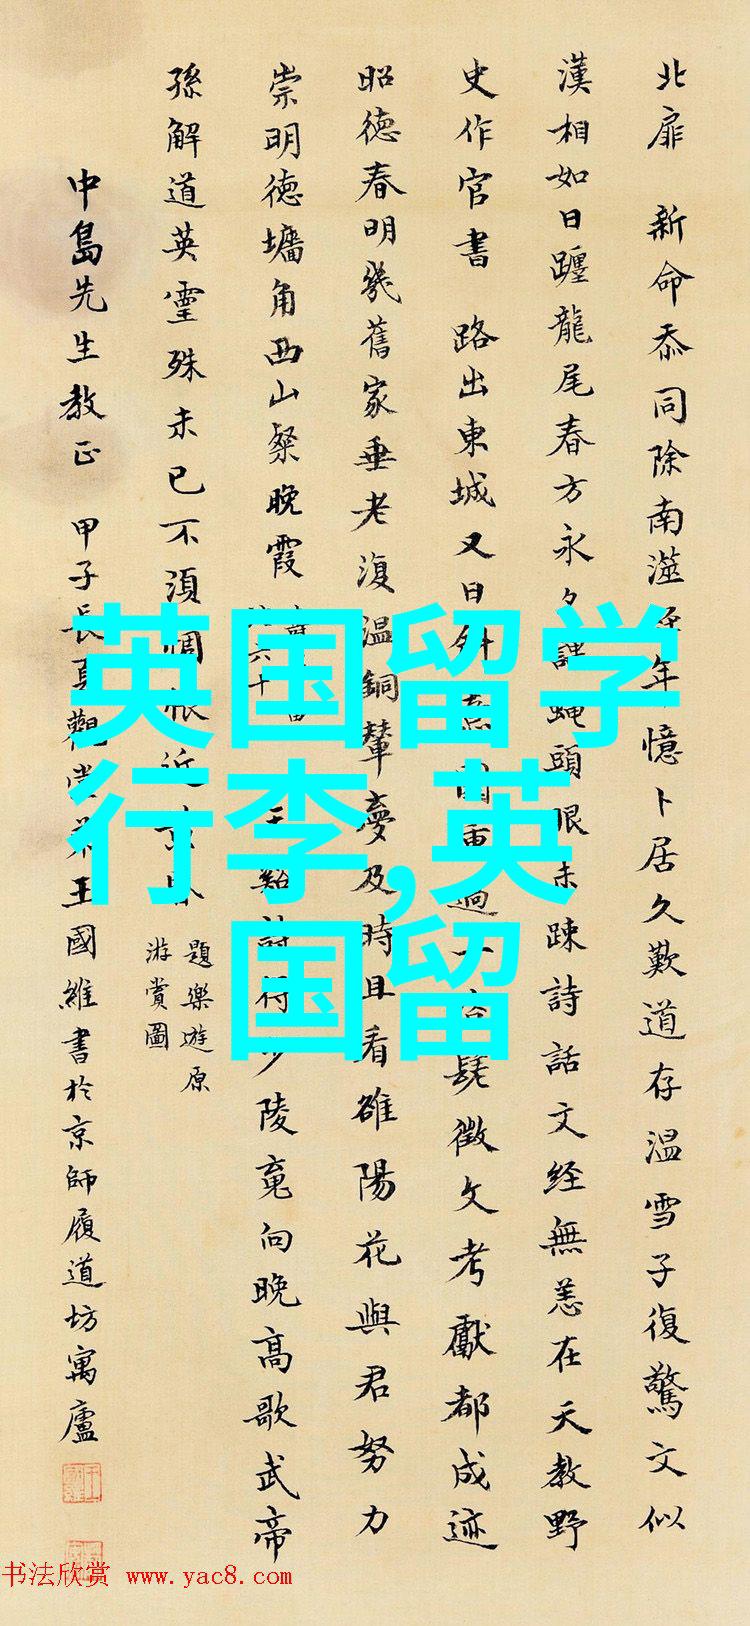 北扉 新命忝同除南㵩年憶卜居久歎道存温雪子復驚文似
漢相如日躔龍尾春方永頭眼未疎詩話文經無恙在天教野
史作官書 路出東城又日斜重過一髦徵文考獻都成迹
昭德春明幾舊家垂老復温銅輦夢及時且看雒陽花與君努力
崇明德墉角西山粲晚霞
六十
詩得少陵竟向晚高歌武帝
孫解道英靈殊未已不須惆悵近
題樂遊原
游賞圖
中島先生教正 甲子長夏觀堂弟王國維書於京師履道坊寓廬
英国留学
行李,英
国留
书法欣赏 www.yac8.com